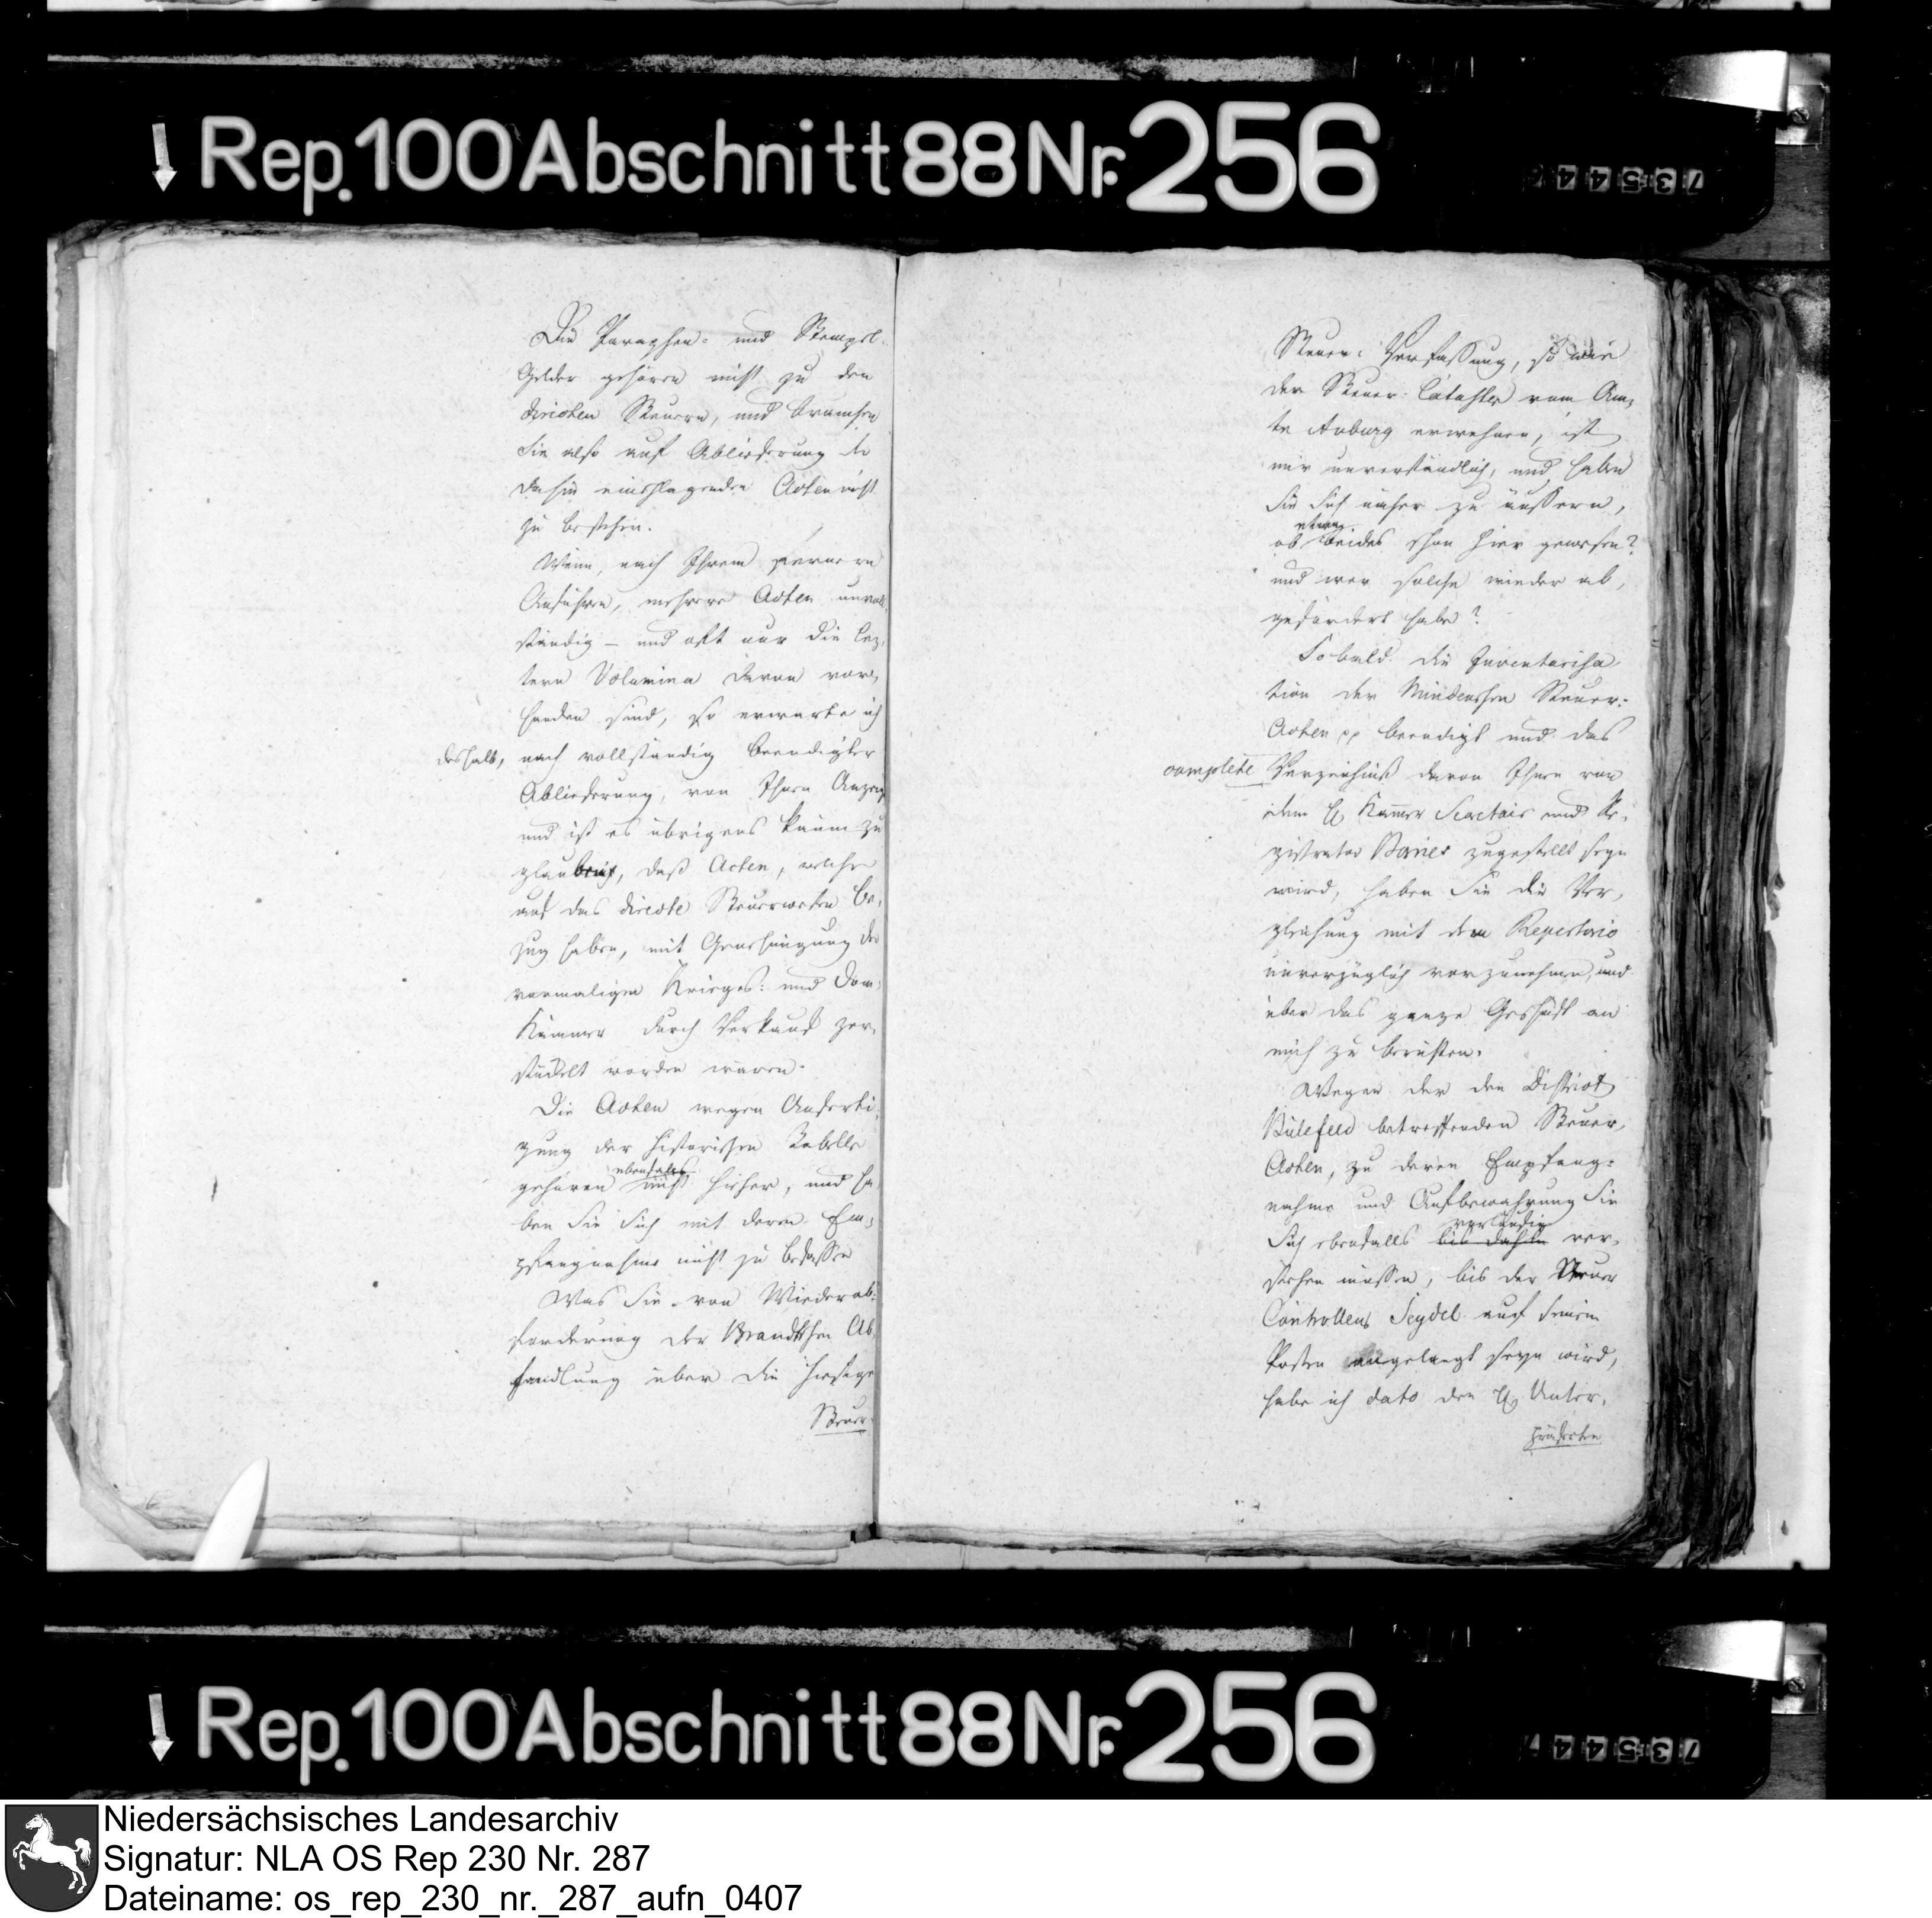 Rep. 100 Abschnitt 88 Nr. 256
73544
Die Paraphen- und Stempel-
Gelder gehören nicht zu den
directen Steuern, und brauchen
Sie also auf Ablieferung der
dahin einschlagenden Acten nicht
zu bestehen.
Wenn, nach Ihrem fernern
Anführen, mehrere Acten unvoll-
ständig – und oft nur die letz-
tern Volumina davon vor-
handen sind, so erwarte ich
deshalb, nach vollständig beendigter
Ablieferung, von Ihnen Anzeige
und ist es übrigens kaum zu
glauben, daß Acten, welche
auf das directe Steuerwesen Be-
zug haben, mit Genehmigung der
vormaligen Krieges- und Dom:
Kammer durch Verkauf zer-
stückelt worden wären.
Die Acten wegen Anferti-
gung der historischen Tabelle
ebenfalls
gehören nicht hieher, und ha-
ben Sie Sich mit deren Em-
pfangnahme nicht zu befassen
Was Sie von Wiederab-
forderung der Brandtschen Ab-
handlung über die hiesige
Steuer-
Steuer-Verfassung, so wie
der Steuer-Cataster vom Am-
te Auburg erwehnen, ist
mir unverständlich, und haben
Sie Sich näher zu äussern,
etwa
ob beides schon hier gewesen?
und wer solche wieder ab-
gefordert habe?
Sobald die Inventarisa-
tion der Mindenschen Steuer-
Acten pp beendigt und das
complete Verzeichniß davon Ihnen von
dem H. Kammer Secretair und Re-
gistrator Borries zugestellt seyn
wird, haben Sie die Ver-
gleichung mit dem Repertorio
unverzüglich vorzunehmen, und
über das ganze Geschäft an
mich zu berichten.
Wegen der den District
Bielefeld betreffenden Steuer-
Acten, zu deren Empfang-
nahme und Aufbewahrung Sie
vorläufig
Sich ebenfalls bis dahin ver-
stehen müssen, bis der Steuer
Controlleur Seydel auf seinem
Posten angelangt seyn wird,
habe ich dato den H. Unter-
präfecten
Rep. 100 Abschnitt 88 Nr. 256
73544
Niedersächsisches Landesarchiv
Signatur: NLA OS Rep 230 Nr. 287
Dateiname: os_rep_230_nr._287_aufn_0407